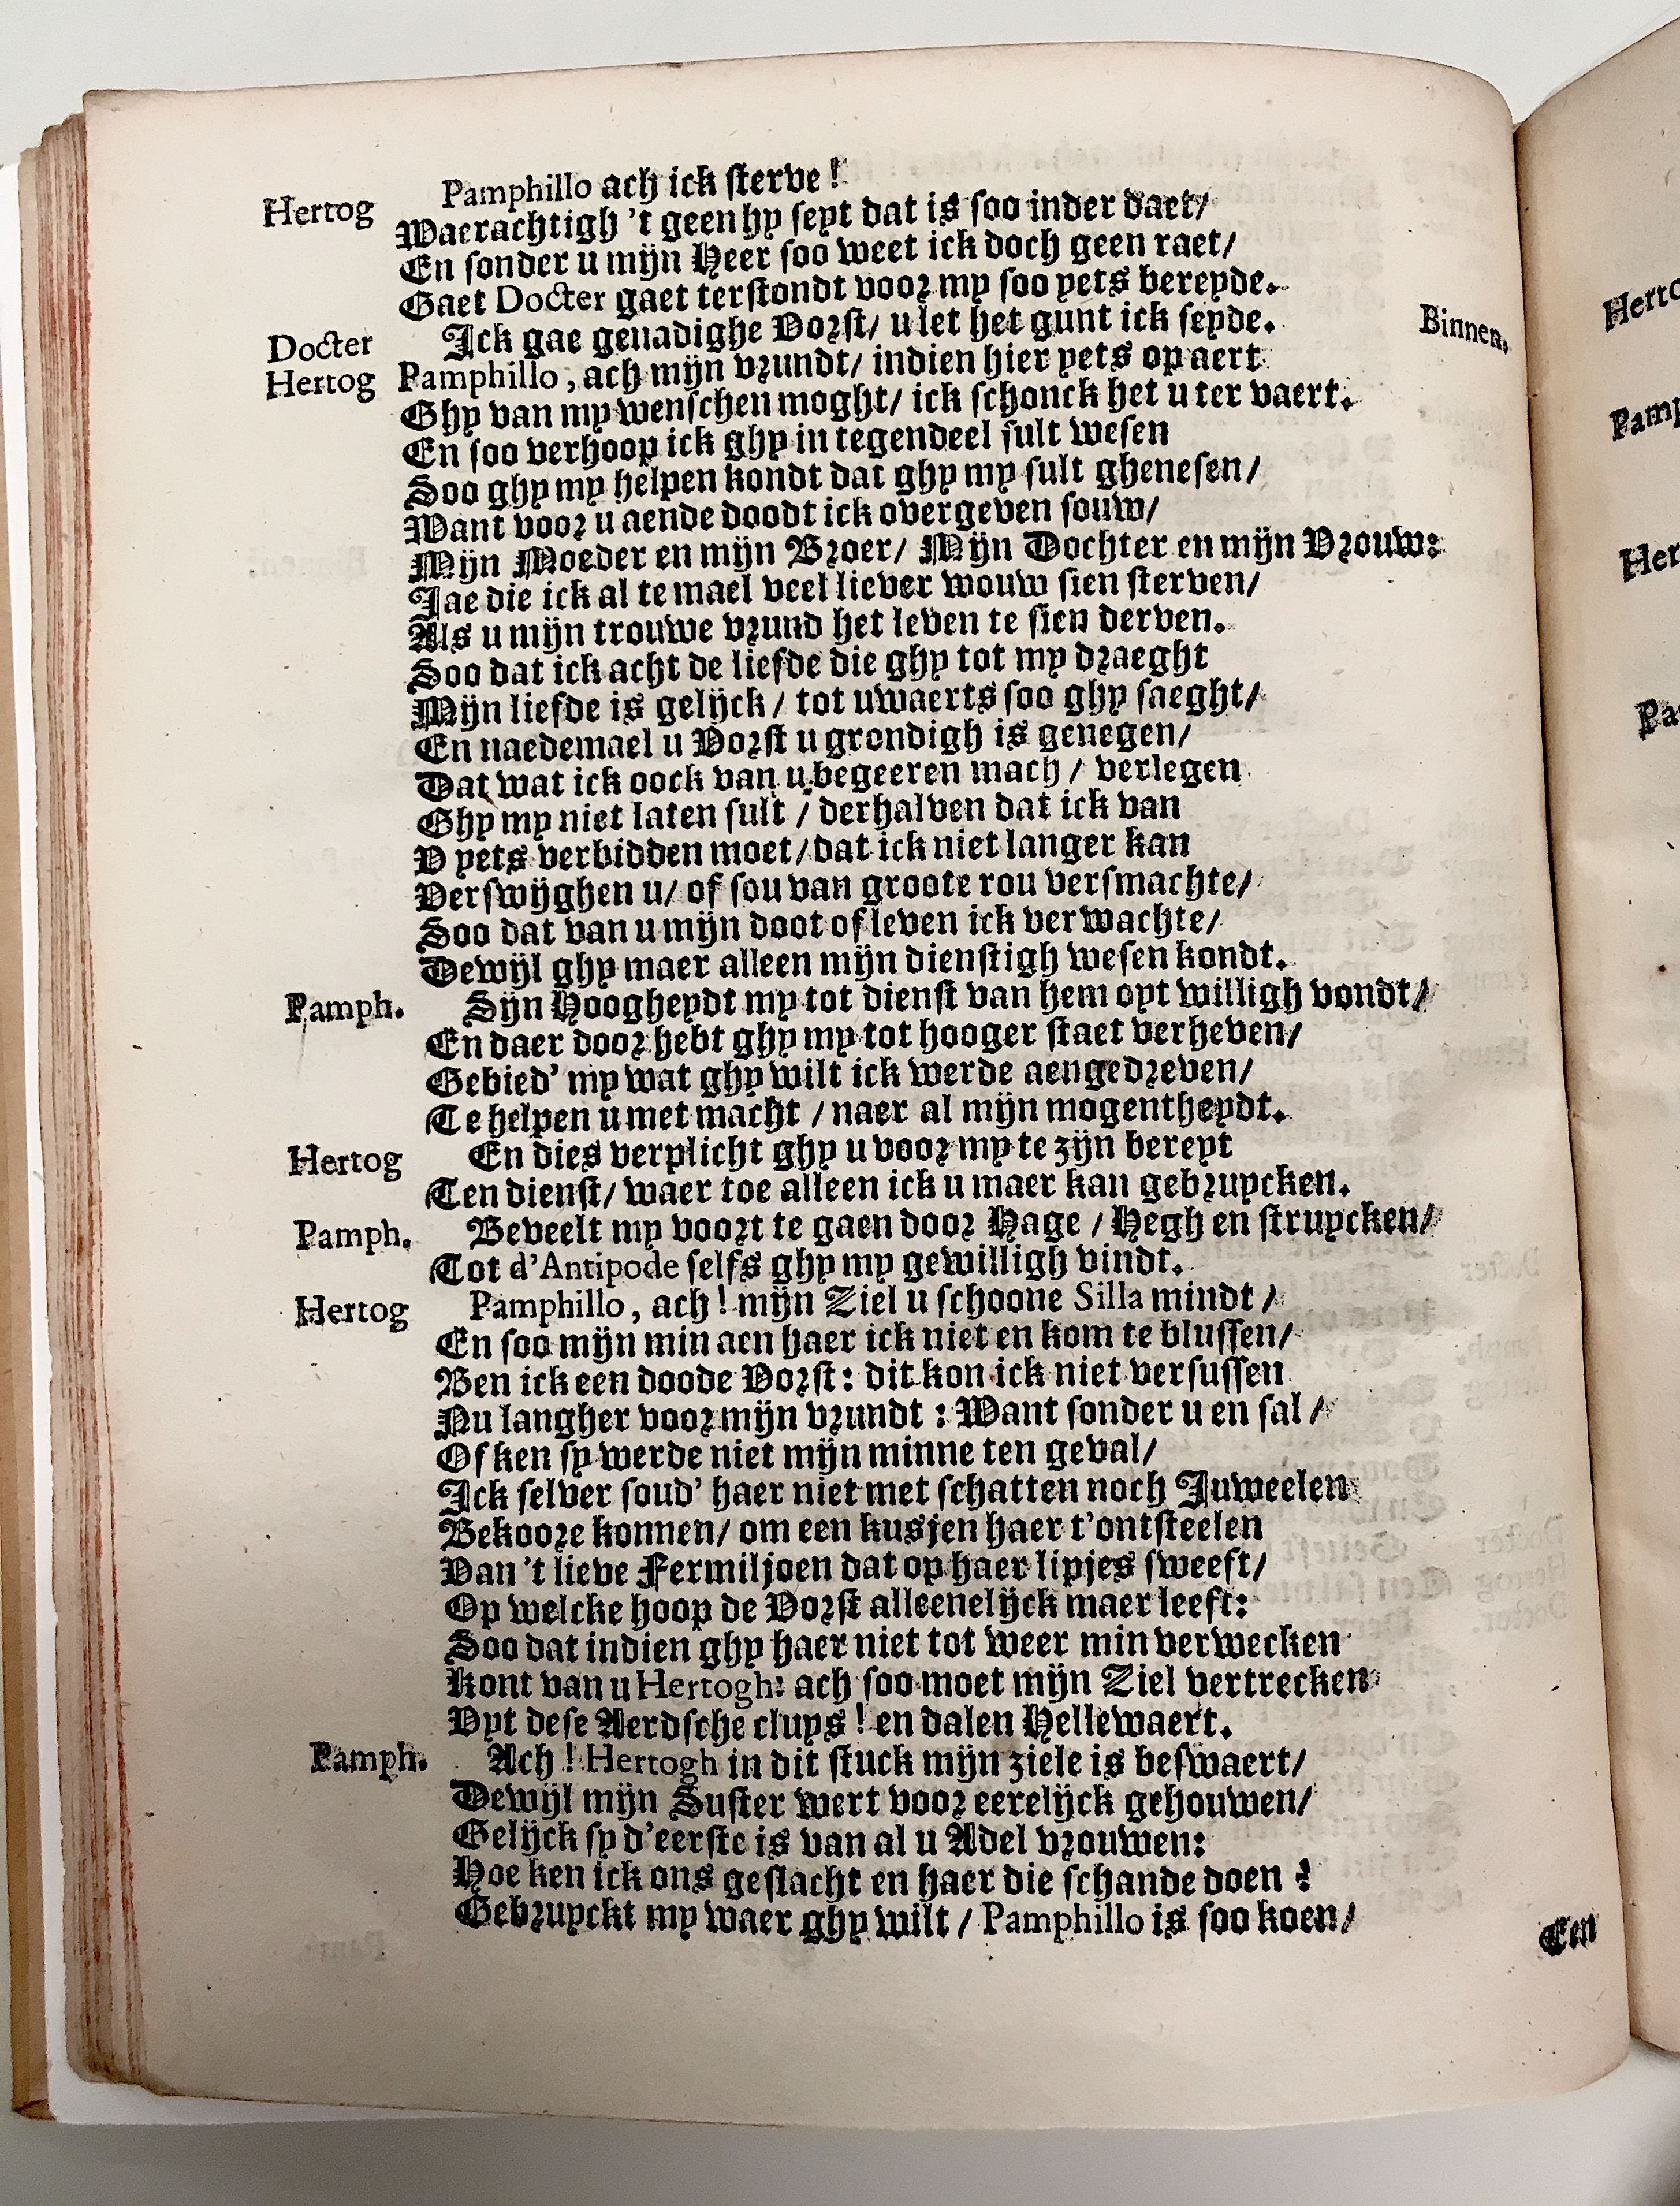 Hertog Pamphillo ach ick sterve!
Waerachtigh 't geen hy seyt dat is soo inder daet/
En sonder u mijn Heer soo weet ick doch geen raet/
Gaet Docter gaet terstondt voor my soo yets bereyde.
Docter Ick gae genadighe Vorst/ u let het gunt ick seyde. Binnen.
Hertog Pamphillo, ach mijn vrundt/ indien hier yets op aert
Ghy van my wenschen moght/ ick schonck het u ter vaert.
En soo verhoop ick ghy in tegendeel sult wesen
Soo ghy my helpen kondt dat ghy my sult ghenesen/
Want voor u aende doodt ick overgeven souw/
Mijn Moeder en mijn Broer/ Mijn Dochter en mijn Vrouw:
Jae die ick al te mael veel liever wouw sien sterven/
Als u mijn trouwe vrund het leven te sien derven.
Soo dat ick acht de liefde die ghy tot my draeght
Mijn liefde is gelijck / tot uwaerts soo ghy saeght/
En naedemael u Vorst u grondigh is genegen/
Dat wat ick oock van u begeeren mach / verlegen
Ghy my niet laten sult / derhalven dat ick van
V yets verbidden moet/ dat ick niet langer kan
Verswijghen u/ of sou van groote rou versmachte/
Soo dat van u mijn doot of leven ick verwachte/
Dewijl ghy maer alleen mijn dienstigh wesen kondt.
Pamph. Sijn Hoogheydt my tot dienst van hem oyt willigh vondt/
En daer door hebt ghy my tot hooger staet verheven/
Gebied' my wat ghy wilt ick werde aengedreven/
Te helpen u met macht / naer al mijn mogentheydt.
Hertog En dies verplicht ghy u voor my te zijn bereyt
Ten dienst/ waer toe alleen ick u maer kan gebruycken.
Pamph. Beveelt my voort te gaen door Hage / Hegh en struycken/
Tot d'Antipode selfs ghy my gewilligh vindt.
Hertog Pamphillo, ach! mijn Ziel u schoone Silla mindt /
En soo mijn min aen haer ick niet en kom te blussen/
Ben ick een doode Vorst: dit kon ick niet versussen
Nu langher voor mijn vrundt : Want sonder u en sal /
Of ken sy werde niet mijn minne ten geval/
Ick selver soud' haer niet met schatten noch Juweelen
Bekoore konnen/ om een kusjen haer t'ontsteelen
Van 't lieve Fermiljoen dat op haer lipjes sweeft/
Op welcke hoop de Vorst alleenelijck maer leeft:
Soo dat indien ghy haer niet tot weer min verwecken
Kont van u Hertogh: ach soo moet mijn Ziel vertrecken
Vyt dese Aerdsche cluys! en dalen Hellewaert.
Pamph. Ach! Hertogh in dit stuck mijn ziele is beswaert/
Dewijl mijn Suster wert voor eerelijck gehouwen/
Gelijck sy d'eerste is van al u Adel vrouwen:
Hoe ken ick ons geslacht en haer die schande doen?
Gebruyckt my waer ghy wilt / Pamphillo is soo koen/
Een